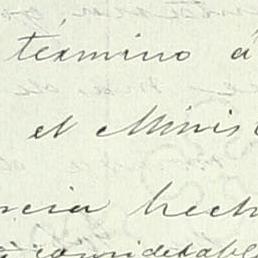 término á
el Minis
ncia hech
considerabl